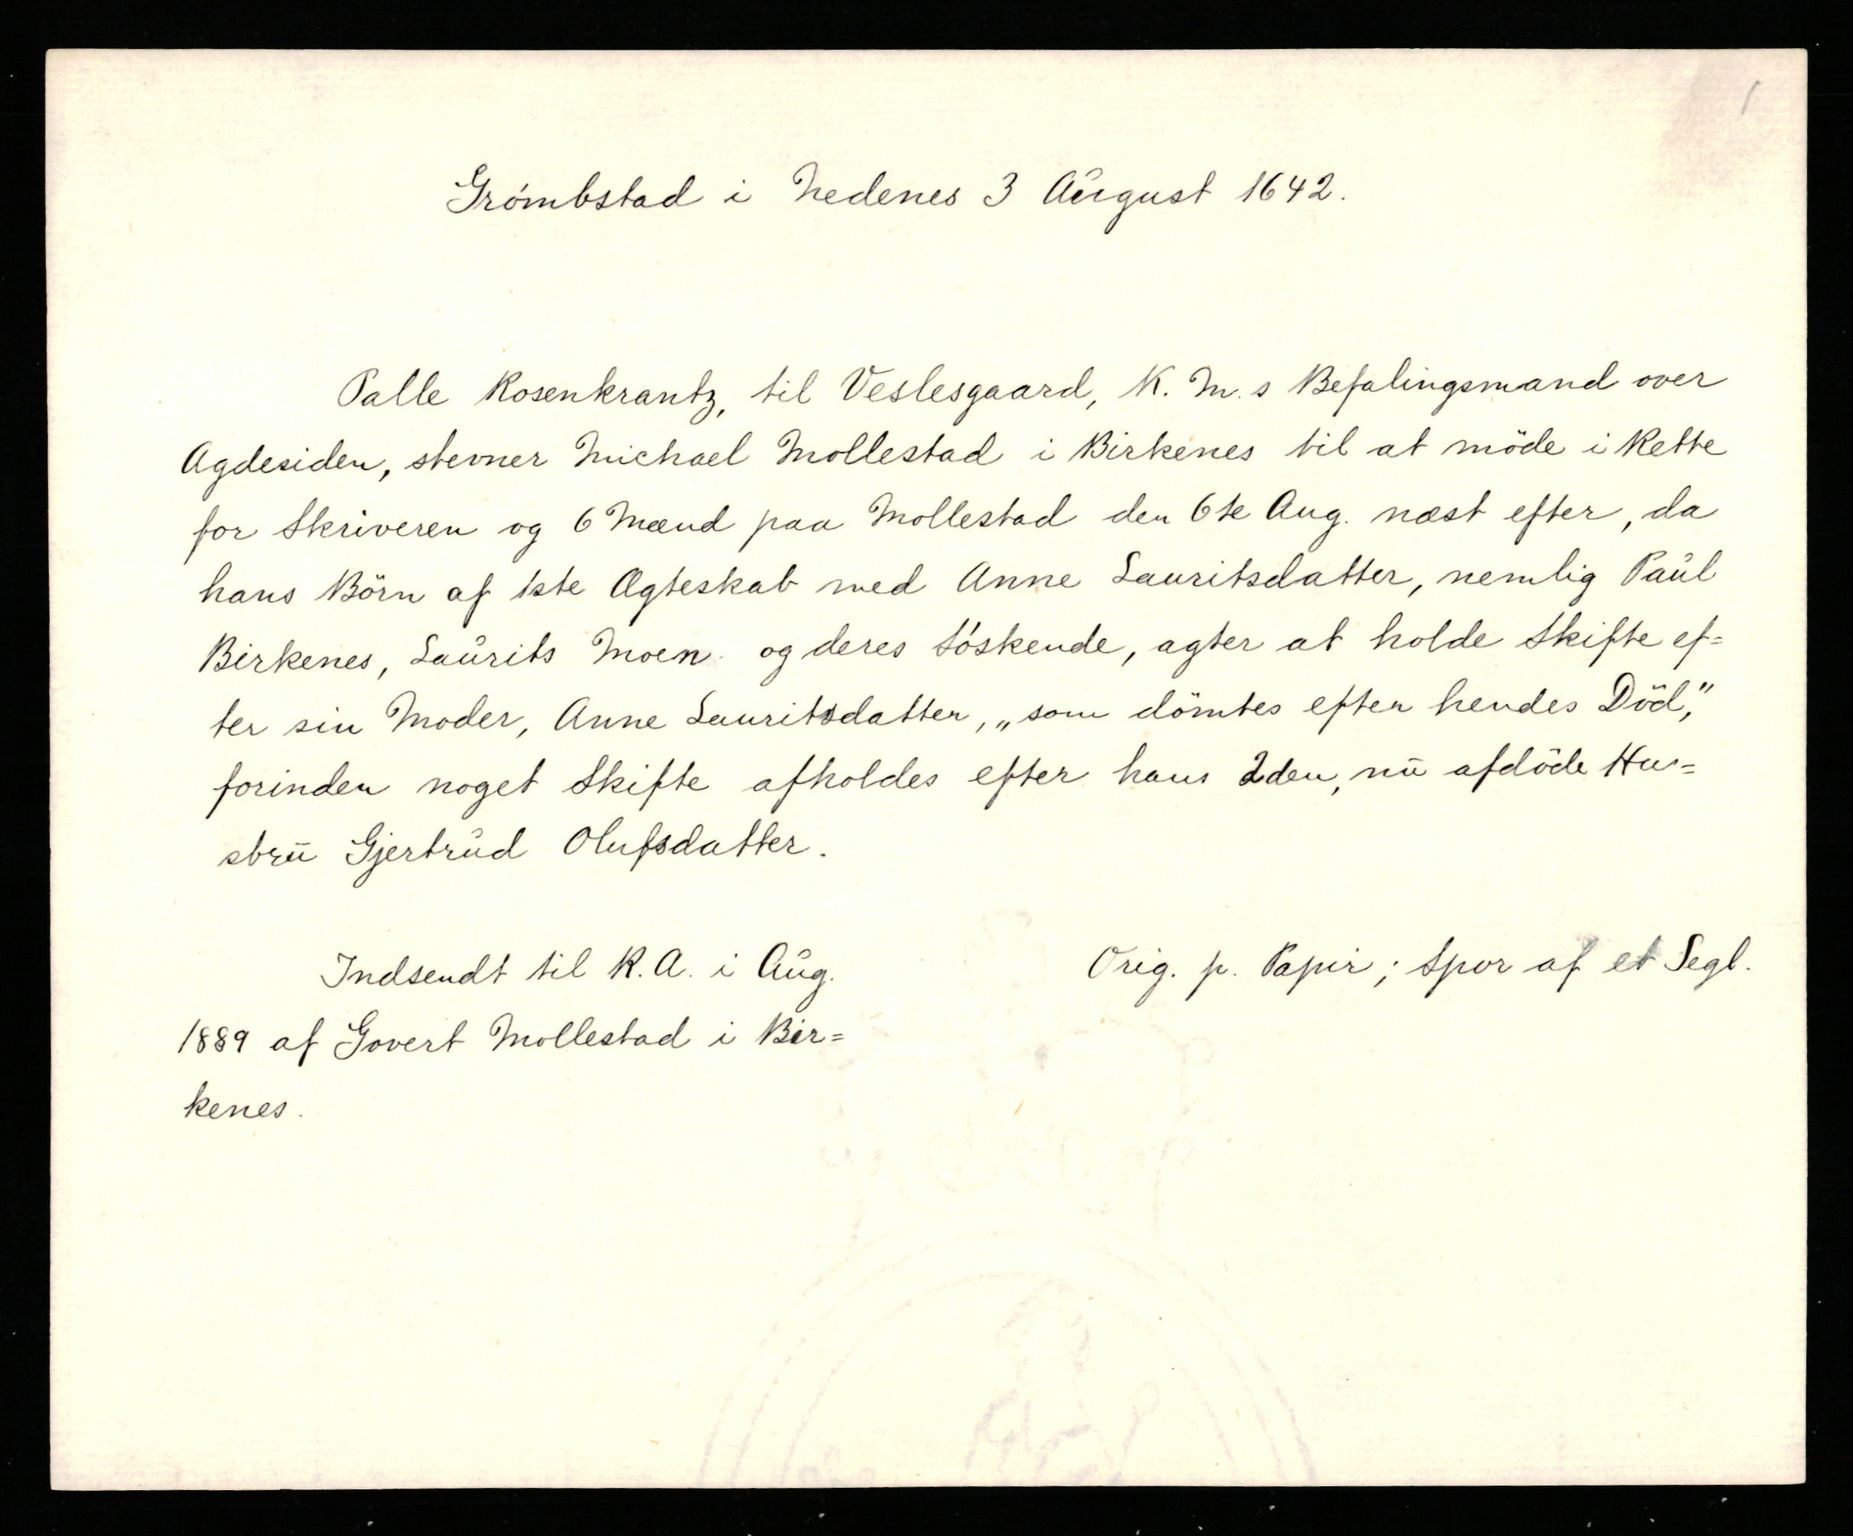 1
Grömbstad i Nedenes 3 August 1642.
Palle Rosenkrantz, til Veslesgaard, K. M.s Befalingsmand over
Agdesiden, stevner Michael Mollestad i Birkenes til at möde i Rette
for Skriveren og 6 Mænd paa Mollestad den 6te Aug. næst efter, da
hans Börn af 1ste Ægteskab med Anne Lauritsdatter, nemlig Paul
Birkenes, Laurits Moen og deres Söskende, agter at holde Skifte ef=
ter sin Moder, Anne Lauritsdatter, „som dömtes efter hendes Död,”
forinden noget Skifte afholdes efter hans 2den, nu afdöde Hu=
stru Gjertrud Olufsdatter.
Indsendt til R. A. i Aug.
1889 af Govert Mollestad i Bir=
kenes.
Orig. p. Papir; Spor af et Segl.